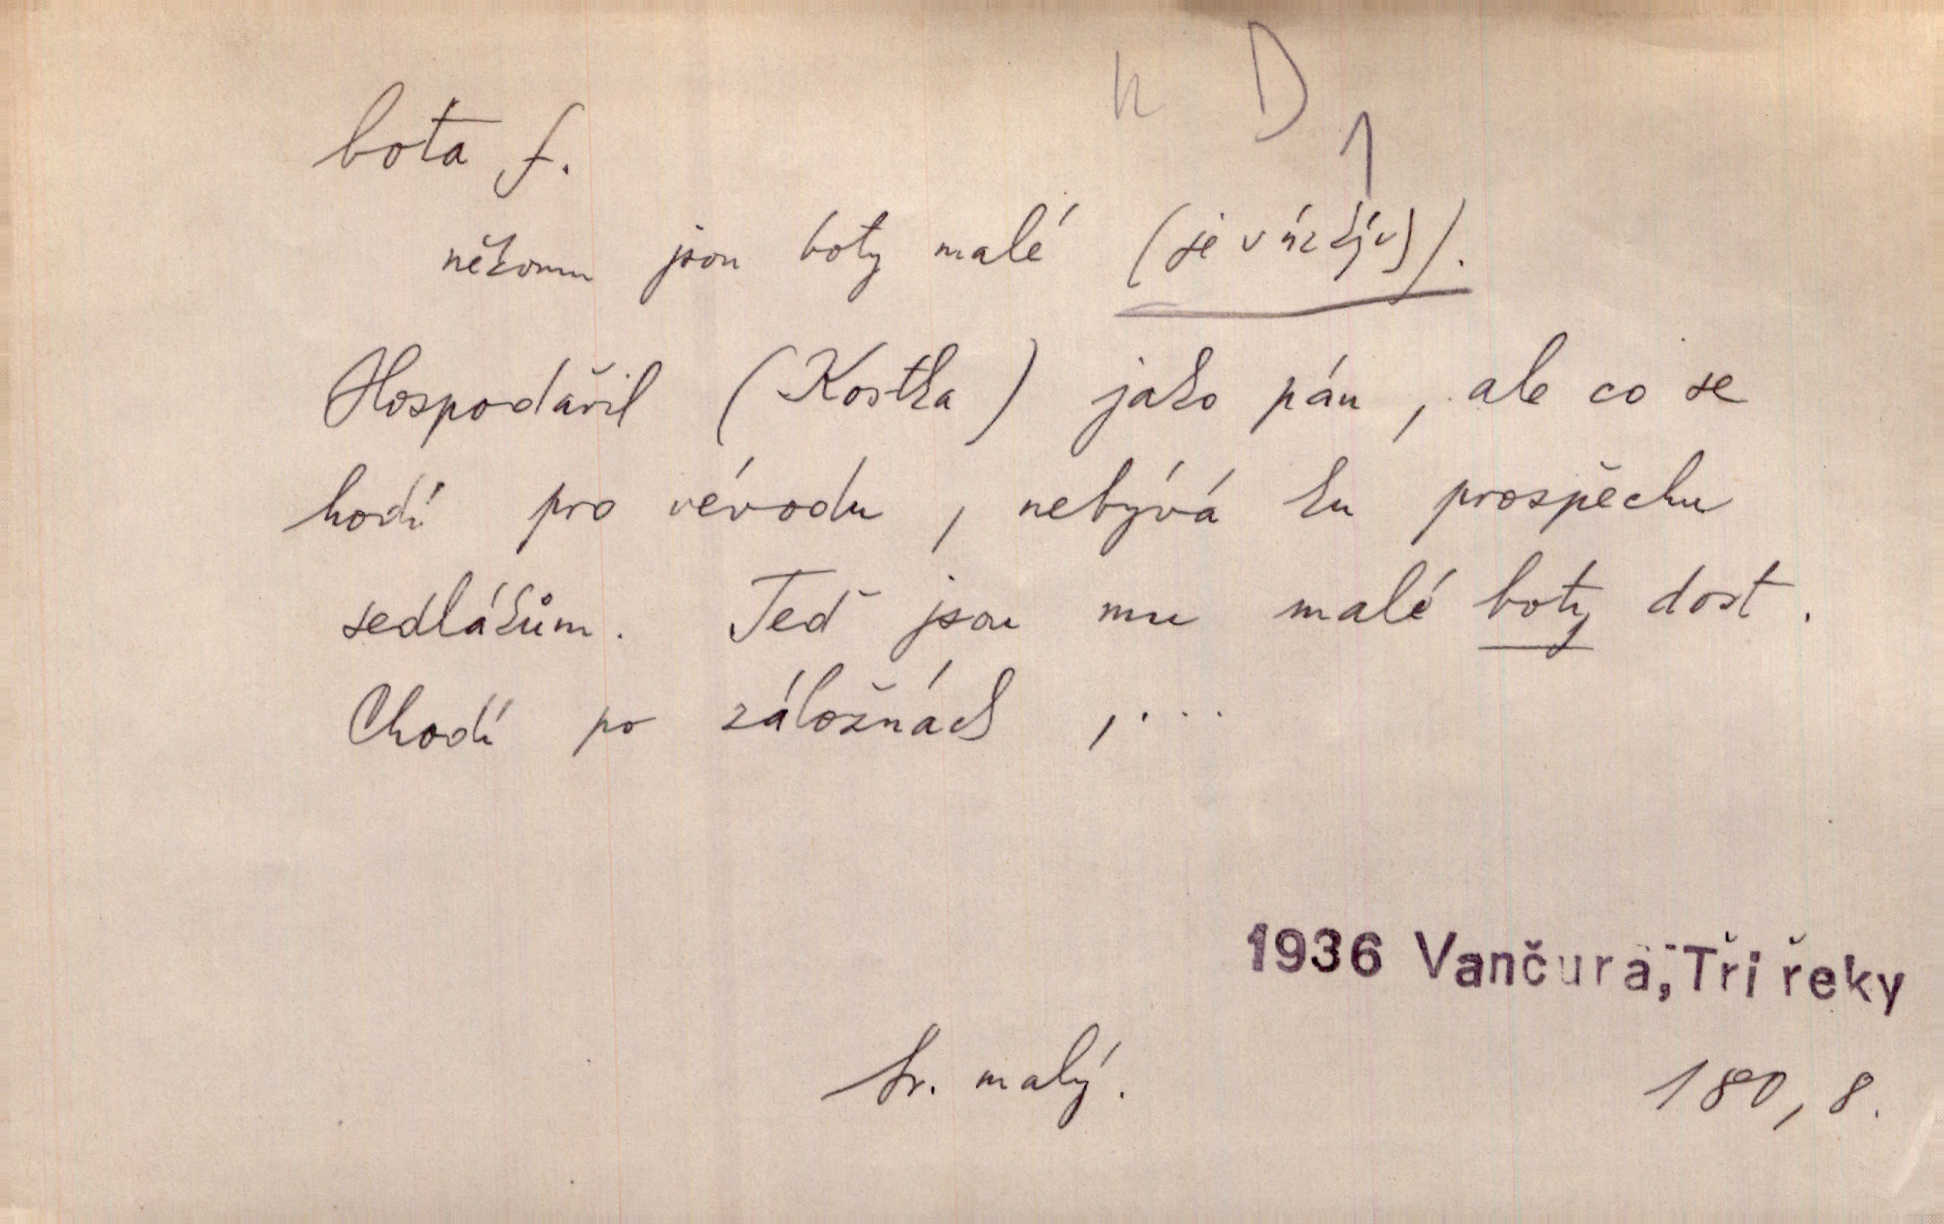 k D
bota f.
někomu jsou boty malé (je v úzkých).
Hospodařil (Kostka) jako pán, ale co se
hodí pro vévodu, nebývá ku prospěchu
sedlákům. Teď jsou mu malé boty dost.
Chodí po záložnách, ...
1936 Vančura, Tři řeky
Sr. malý.
180, 8.